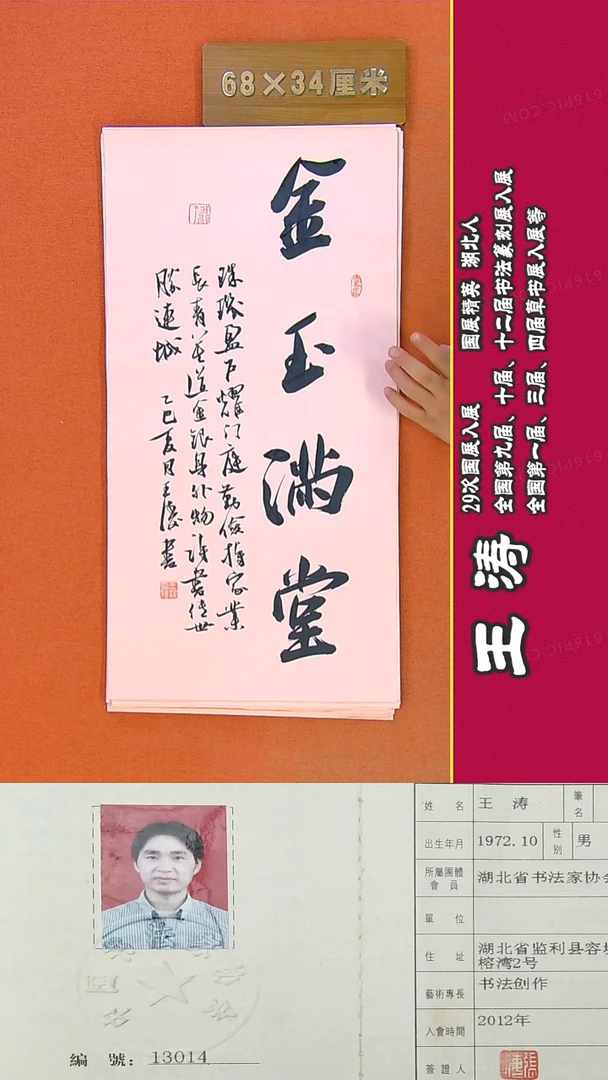 68×34厘米
金玉满堂
珠玑盈户耀门庭勤俭持家业
长青莫道金银身外物诗书传世
胜连城 乙巳夏月王涛书
29次国展入展 国展精英 湖北人
全国第九届、十届、十二届书法篆刻展入展
全国第一届、三届、四届草书展入展等
王涛
编 號: 13014
姓 名 王 涛 筆名
出生年月 1972.10 性别 男
所屬團體會員 湖北省书法家协会
單 位
住 址 湖北省监利县容城
榕湾2号
藝術專長 书法创作
入會時間 2012年
簽 證 人